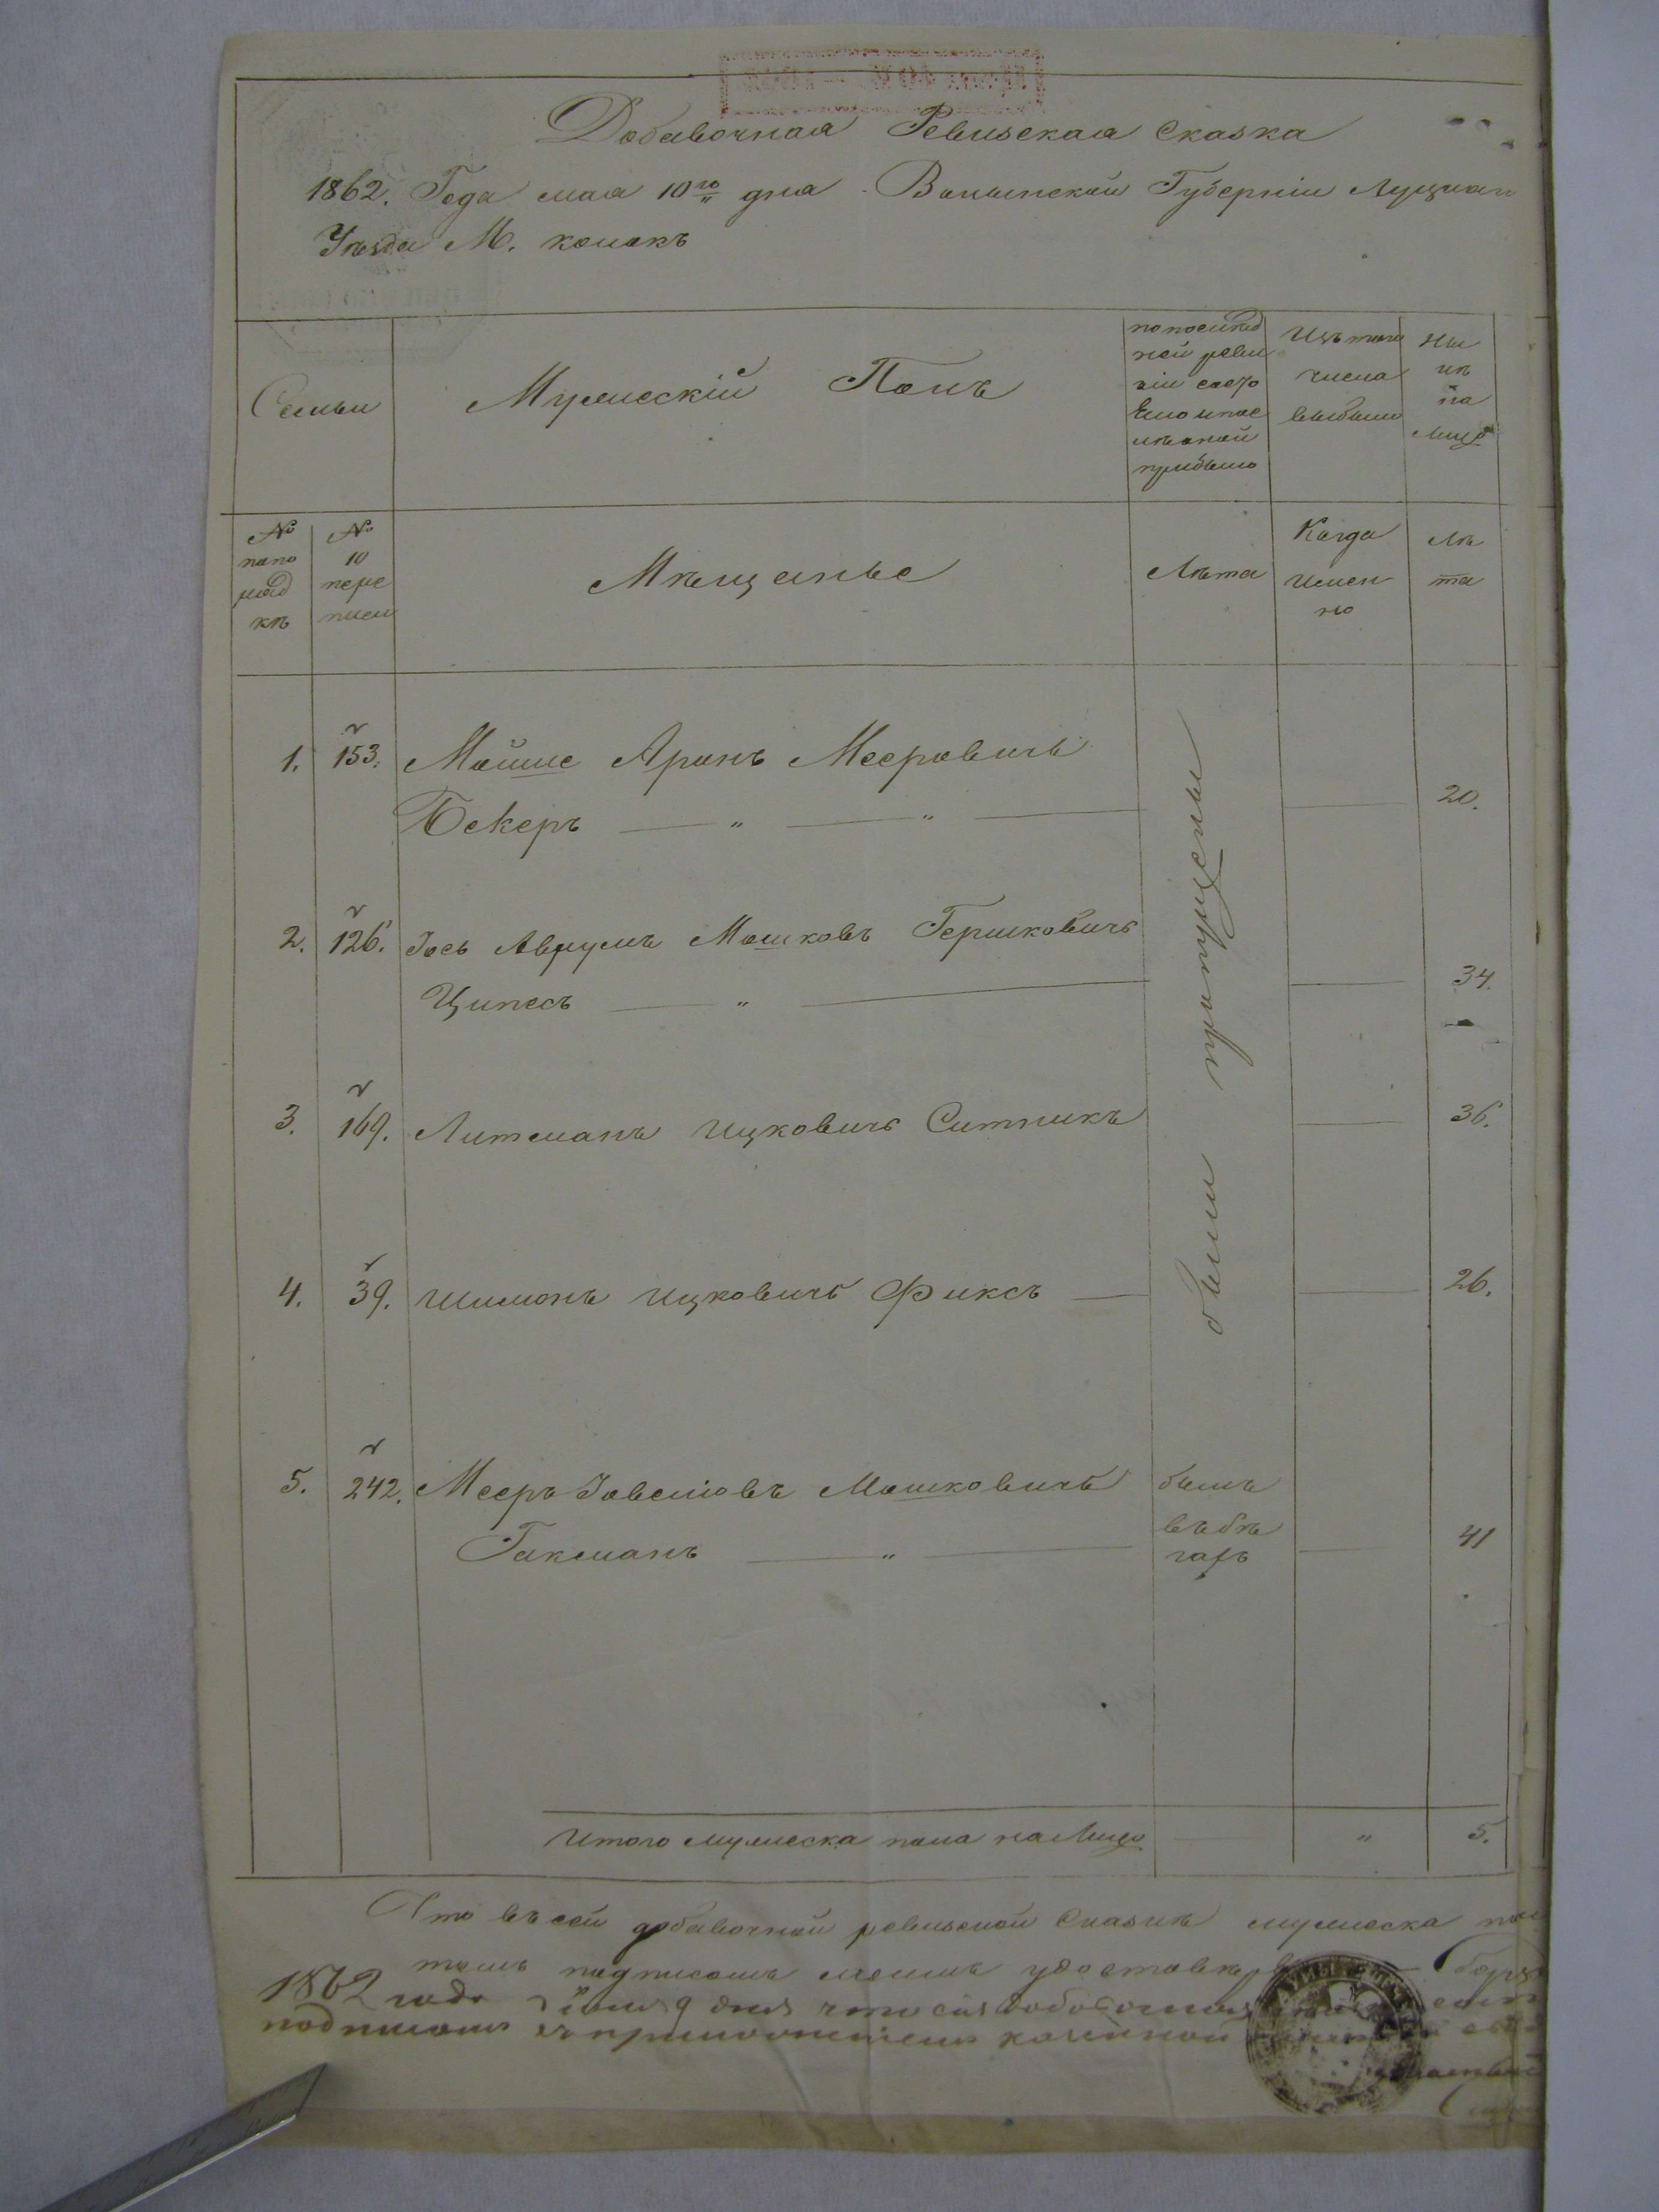 Добавочная Ревизская сказка
1862. Года мая 10го дня Волынской Губернiи Луцкаго
Уезда М. колокъ
Семьи
Мужескiй Полъ
по послед
ней реви
зiи состо
яло и пос
ле оной
прибыло
Изъ того
числа
выбыло
Ны
нѣ
на
лицо
№
по по
ряд
кѣ
№
10
пере
писи
Мѣщанъе
Лѣта
Когда
имен
но
Лѣ
та
1. 153. Мойше Аронъ Мееровичъ
Бекеръ — „ — „ — 20.
2. 126. Iось Аврумъ Мошковъ Гершковичъ
Ципесъ — „ — 34.
3. 169. Литманъ Ицковичъ Ситникъ 36.
4. 39. Шимонъ Ицковичъ Фиксъ — 26.
были пропущены
5. 242. Мееръ Iовелiовъ Мошковичъ былъ
въ бѣ
Гиксманъ — „ — гахъ — 41
Итого мужеска пола на лицо — „ 5.
Что въ сей добавочной ревизской сказкѣ мужеска пол
томъ подписомъ моимъ удостовѣр
1862 года Iюня 9 дня что сiя
подписомъ съ приложенiемъ казенной